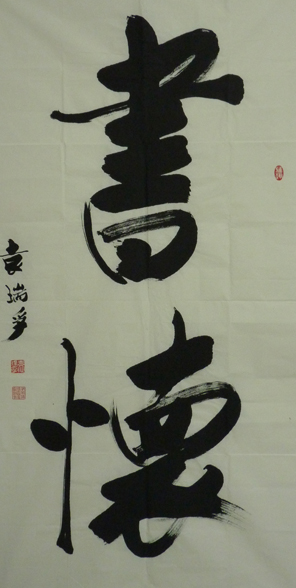 書懷
袁瑞孚